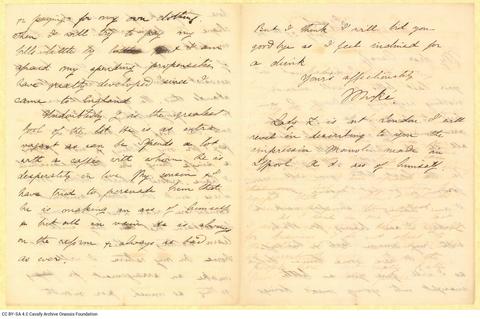 or paying for my own clothing
then I will try to pay my
bills little by little but I am
afraid my spending propensities
have really developed since I
came to England
Undoubtedly Z is the greatest
fool of the lot. He is as extra
vagant as can be spends a lot
with a caffée with whom he is
desperately in love. My cousin & I
have tried to persuade him that
he is making an ass of himself
but all in vain he is always
on the reform & always as bad
as ever.
But I think I will bid you
goodbye as I feel inclined for
a drink
Yours affectionately
Mike
Lady Z. is at London. I will
revel in describing to you the
impression Manoli made in
L'pool & the ass of himself
CC BY-SA 4.0 Cavafy Archive Onassis Foundation